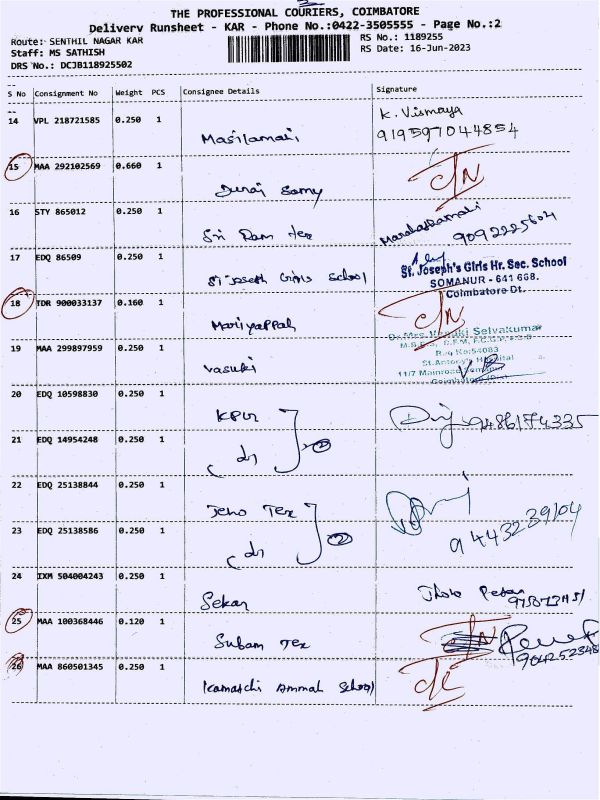 THE PROFESSIONAL COURIERS, COIMBATORE
Delivery Runsheet - KAR - Phone No.:0422-3505555 - Page No.:2
Route: SENTHIL NAGAR KAR
RS No.: 1189255
Staff: MS SATHISH
RS Date: 16-Jun-2023
DRS No.: DCJB118925502
S No Consignment No Weight PCS Consignee Details Signature
14 VPL 218721585 0.250 1 Masilamani K. Vismaya
919597044854
15 MAA 292102569 0.660 1 Durai Samy C/N
16 STY 865012 0.250 1 Sri Ram Tex
9092225604
17 EDQ 86509 0.250 1 St Joseph Girls School
St. Joseph's Girls Hr. Sec. School
SOMANUR - 641 668.
Coimbatore Dt.
18 TDR 900033137 0.160 1 Mariyappan C/N
19 MAA 299897959 0.250 1 Vasuki
Selvakumar
Reg No:54083
St.Antony's Hospital
11/7 Mainroad
20 EDQ 10598830 0.250 1 KPUR
9486174335
21 EDQ 14954248 0.250 1 2
22 EDQ 25138844 0.250 1 Jeno Tex
9443239104
23 EDQ 25138586 0.250 1 2
24 IXM 504004243 0.250 1 Sekar
25 MAA 100368446 0.120 1 Subam Tex C/N
904252348
26 MAA 860501345 0.250 1 Kamatchi Ammal School